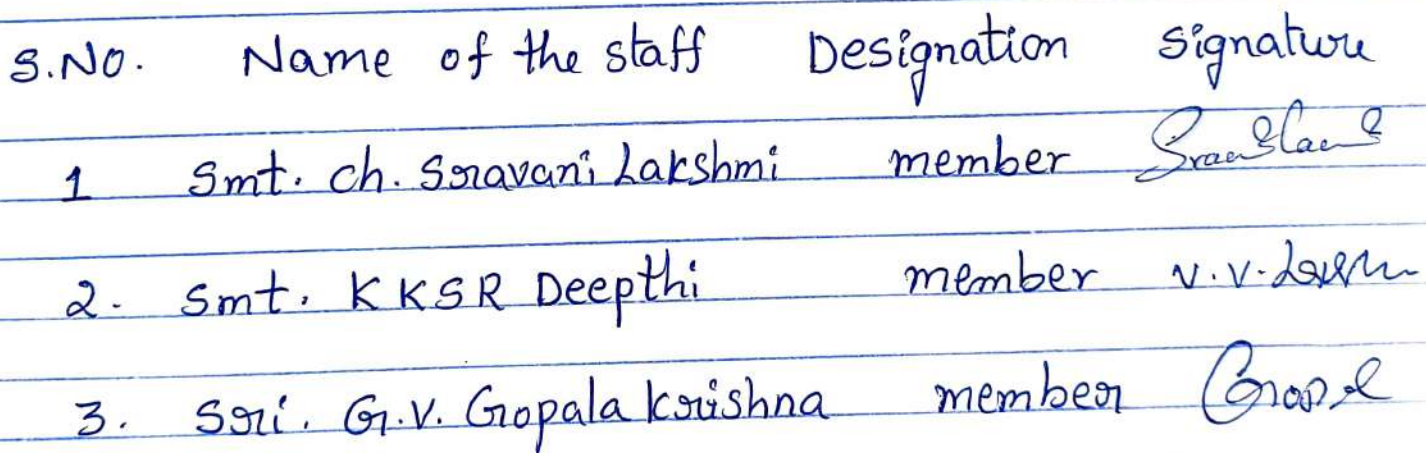 S.NO. Name of the staff Designation Signature
1 Smt. ch. Sravani Lakshmi member
2. Smt. KKSR Deepthi member V.V.
3. Sri. G.V. Gopala krishna member Gopal